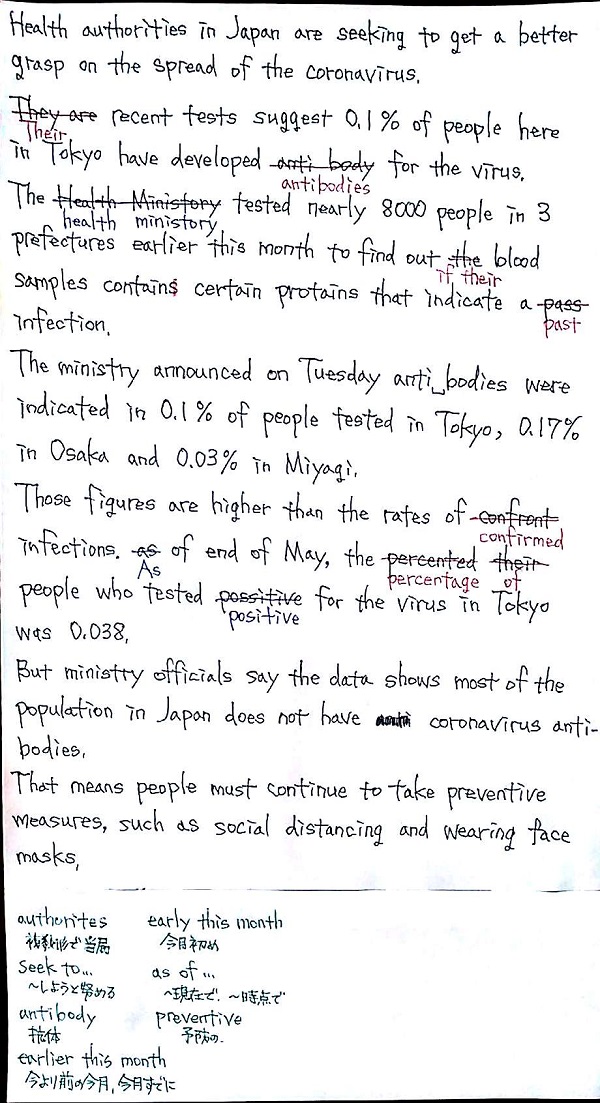 Health authorities in Japan are seeking to get a better
grasp on the spread of the coronavirus.
They are recent tests suggest 0.1% of people here
Their
in Tokyo have developed anti body for the virus.
antibodies
The Health Ministory tested nearly 8000 people in 3
health ministory
prefectures earlier this month to find out the blood
if their
samples contains certain protains that indicate a pass
past
infection.
The ministry announced on Tuesday anti bodies were
indicated in 0.1% of people tested in Tokyo, 0.17%
in Osaka and 0.03% in Miyagi.
Those figures are higher than the rates of confront
confirmed
infections. as of end of May, the percented their
As percentage of
people who tested possitive for the virus in Tokyo
positive
was 0.038.
But ministry officials say the data shows most of the
population in Japan does not have anti coronavirus anti-
bodies.
That means people must continue to take preventive
measures, such as social distancing and wearing face
masks,
authorites early this month
複数形で当局 今月初め
seek to... as of ...
~しようと努める ~現在で. ~時点で
antibody preventive
抗体 予防の.
earlier this month
今より前の今月, 今月すでに